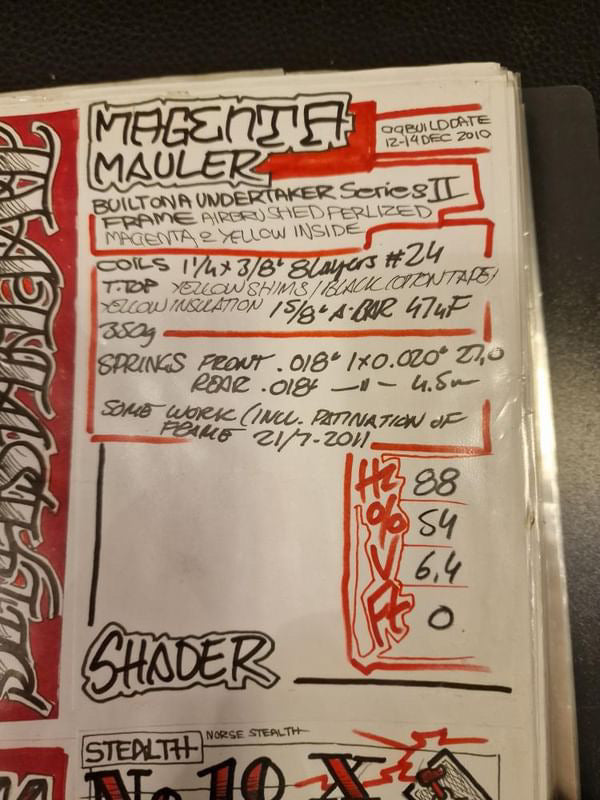 MAGENTA
MAULER
OGBUILDDATE
12-14DEC 2010
BUILT ON A UNDERTAKER Series II
FRAME AIRBRUSHED PERLIZED
MAGENTA & YELLOW INSIDE
COILS 1 1/4 x 3/8" 8 Layers #24
T.TOP YELLOW SHIMS / BLACK COTTON TAPE/
YELLOW INSULATION 1 5/8" A-BAR 47uF
350g
SPRINGS FRONT .018" 1x0.020" 27,0
REAR .018" —11— 4.5m
SOME WORK (INCL. PATINATION OF
FRAME 21/7-2011
Hz 88
% 54
V 6,4
Ft 0
SHADER
STEALTH NORSE STEALTH
No 10 X